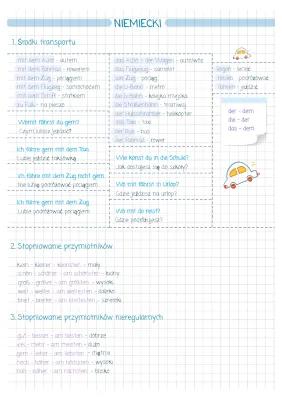 NIEMIECKI
1. Środki transportu
mit dem Auto - autem
mit dem Fahrrad - rowerem
mit dem Zug - pociągiem
mit dem Flugzeug - samolotem
mit dem Schiff - statkiem
zu Fuß - na pieszo
das Auto / der Wagen - auto/wóz
das Flugzeug - samolot
der Zug - pociąg
die U-Bahn - metro
die S-Bahn - kolejka miejska
die Straßenbahn - tramwaj
der Hubschrauber - helikopter
das Taxi - taxi
der Bus - bus
das Fahrrad - rower
fliegen - lecieć
reisen - podróżować
fahren - jeździć
der - dem
die - der
das - dem
Womit fährst du gern?
Czym lubisz jeździć?
Ich fahre gern mit dem Taxi.
Lubię jeździć taksówką.
Ich fahre nicht gern mit dem Zug
Nie lubię podróżować pociągiem
Ich fahre gern mit dem Zug
Lubię podróżować pociągiem.
Wie kommst du in die Schule?
Jak dostajesz się do szkoły?
Wo fährst in Urlop?
Gdzie jeździsz na urlop?
Wo
Gdzie
2. Stopniowanie przymiotników
klein - kleiner - am kleinsten - mały
schön - schöner - am schönsten - ładny
groß - größer - am größten - wysoki
weit - weiter - am weitesten - daleko
breit - breiter - am breitesten - szeroki
3. Stopniowanie przymiotników nieregularnych
gut - besser - am besten - dobrze
viel - mehr - am meisten - dużo
gern - lieber - am liebsten - chętnie
hoch - höher - am höchsten - wysoki
nah - näher - am nächsten - blisko